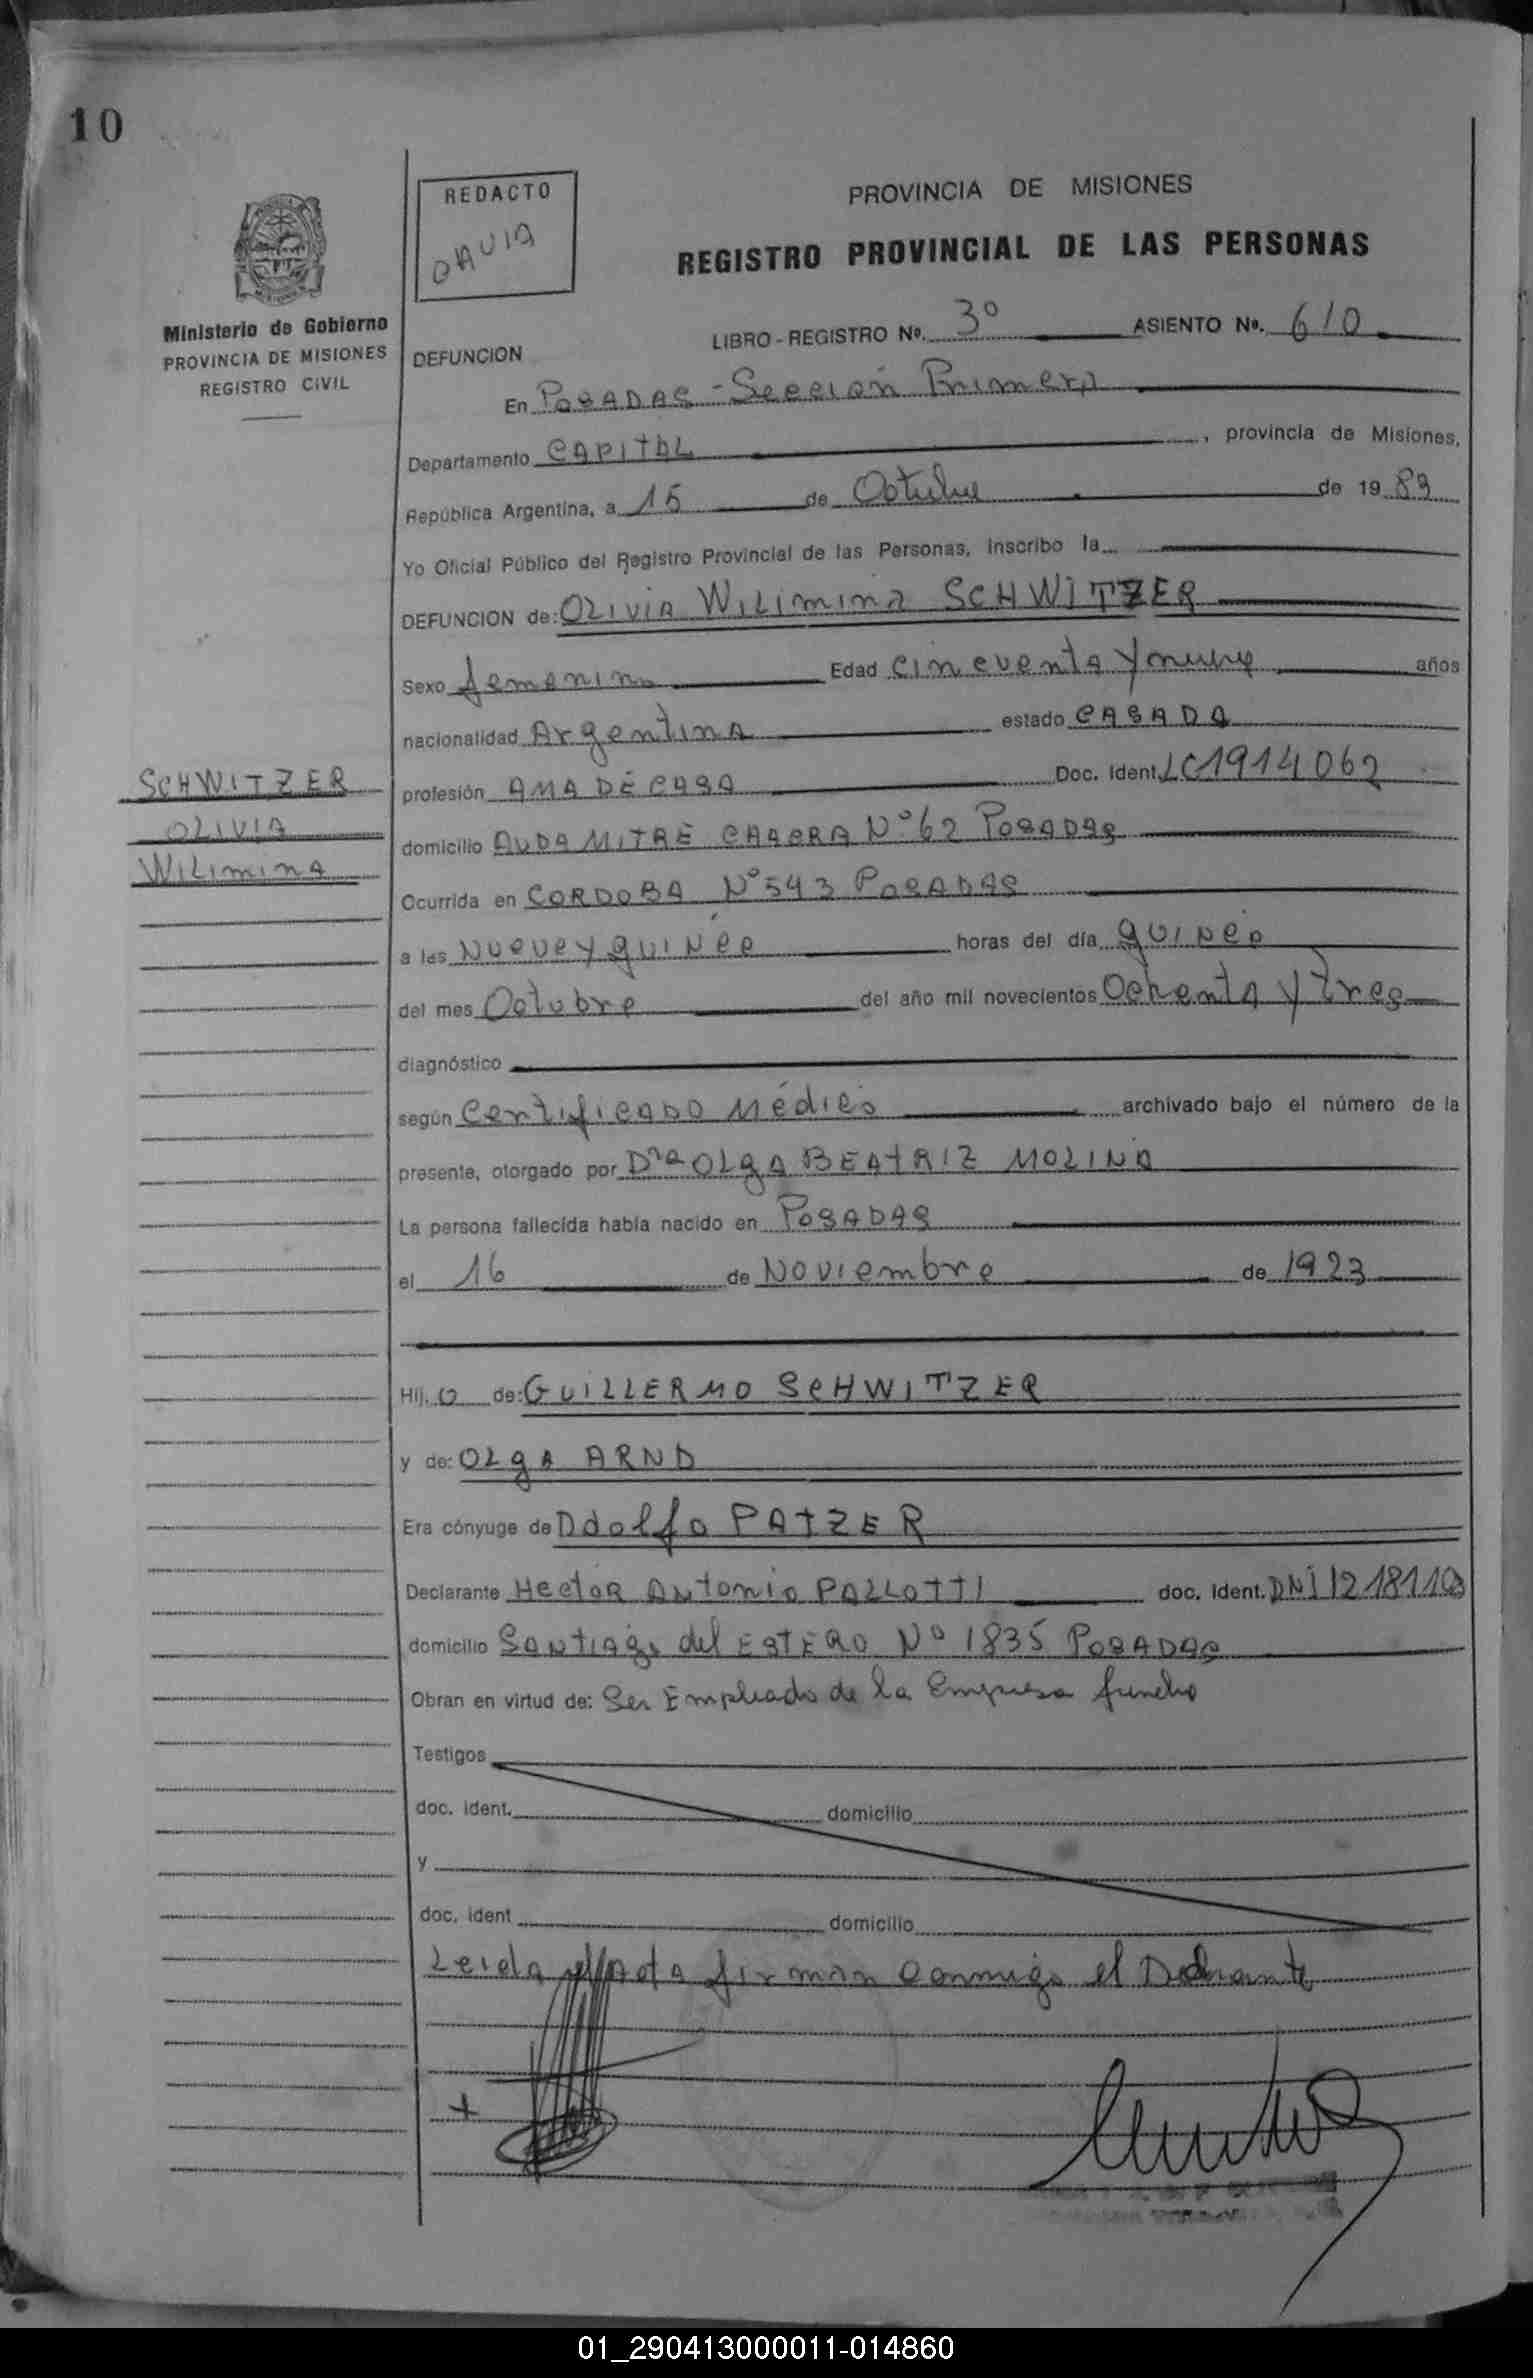 10
REDACTO
DAVIA
PROVINCIA DE MISIONES
REGISTRO PROVINCIAL DE LAS PERSONAS
Ministerio de Gobierno
PROVINCIA DE MISIONES
REGISTRO CIVIL
LIBRO - REGISTRO Nº. 3º ASIENTO Nº. 610
DEFUNCION
En POSADAS - Sección Primera
Departamento CAPITAL, provincia de Misiones,
República Argentina, a 15 de Octubre de 1983
Yo Oficial Público del Registro Provincial de las Personas, inscribo la
DEFUNCION de: OLIVIA WILIMINA SCHWITZER
Sexo femenino Edad cincuenta y nueve años
nacionalidad Argentina estado CASADA
profesión AMA DE CASA Doc. Ident. LC1914062
SCHWITZER
OLIVIA
WILIMINA
domicilio AVDA MITRE CHACRA Nº 62 POSADAS
Ocurrida en CORDOBA Nº 543 POSADAS
a las NUEVE y QUINCE horas del día QUINCE
del mes Octubre del año mil novecientos Ochenta y Tres
diagnóstico
según Certificado Médico archivado bajo el número de la
presente, otorgado por Dra OLGA BEATRIZ MOLINA
La persona fallecida había nacido en POSADAS
el 16 de Noviembre de 1923
Hij a de: GUILLERMO SCHWITZER
y de: OLGA ARND
Era cónyuge de Adolfo PATZER
Declarante Hector Antonio PALLOTTI doc. Ident. DNI
domicilio SANTIAGO del ESTERO Nº 1835 POSADAS
Obran en virtud de: Ser Empleado de la Empresa funebre
Testigos
doc. ident. domicilio
y
doc. ident domicilio
Leida el Acta firman conmigo el Declarante
01_290413000011-014860